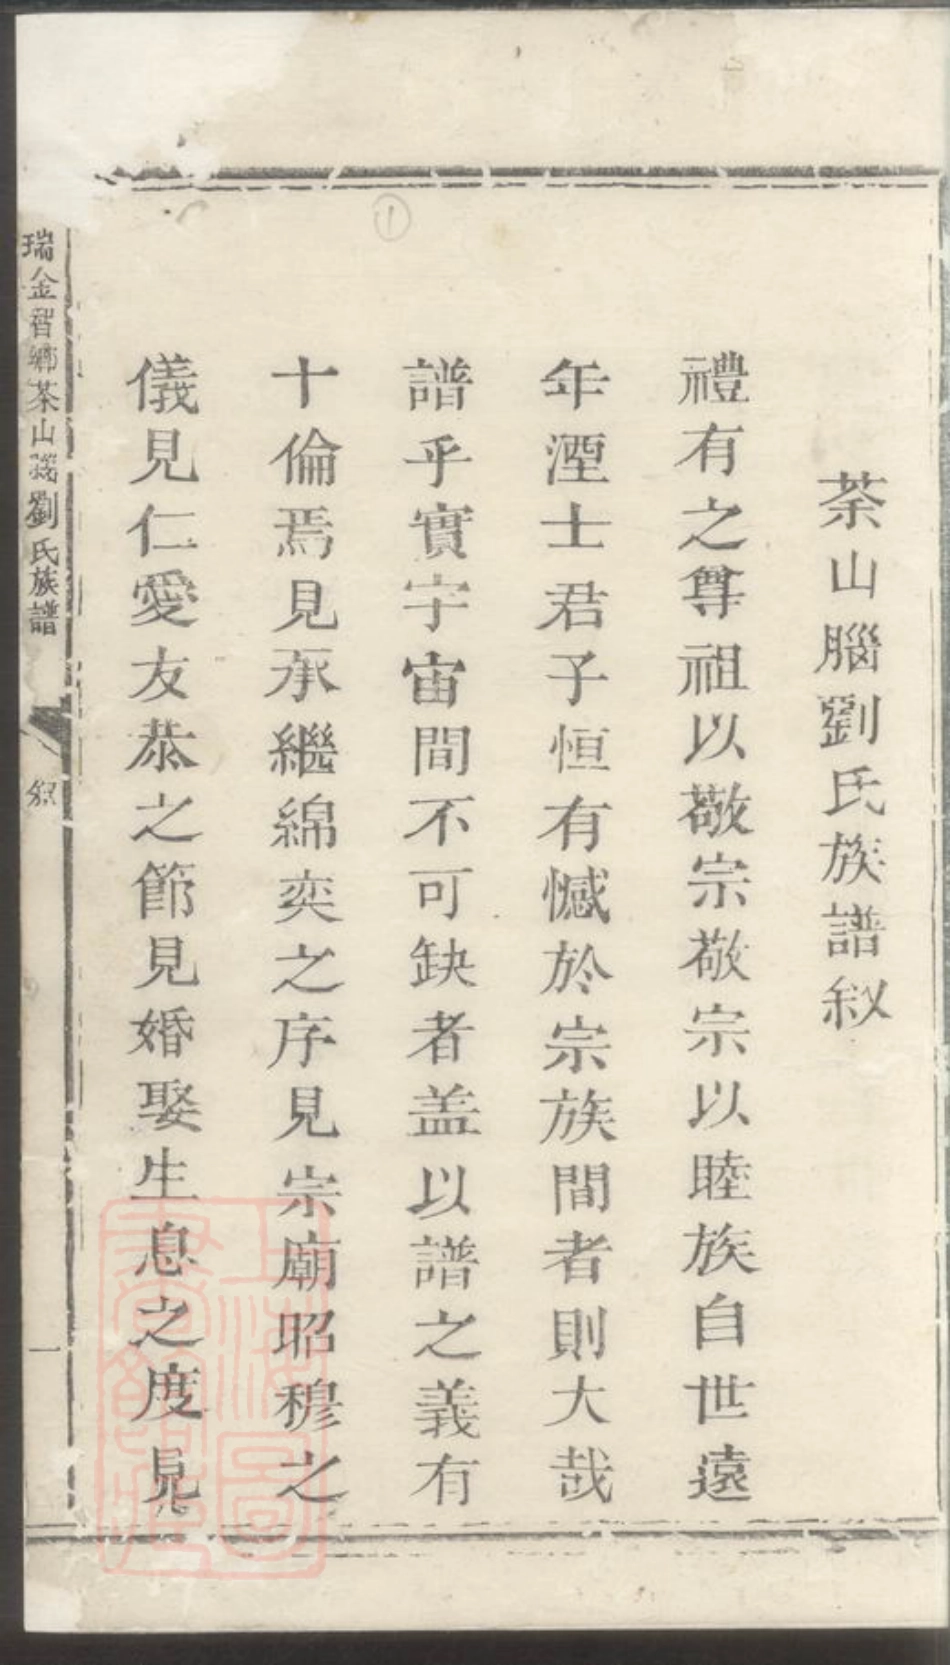 茶山腦劉氏族譜叙
禮有之尊祖以敬宗敬宗以睦族自世遠
年湮士君子恒有憾於宗族間者則大哉
譜乎實宇宙間不可缺者盖以譜之義有
十倫焉見承繼綿奕之序見宗廟昭穆之
儀見仁愛友恭之節見婚娶生息之度見
瑞金智鄉茶山劉氏族譜
叙
一
①
上海圖書館藏